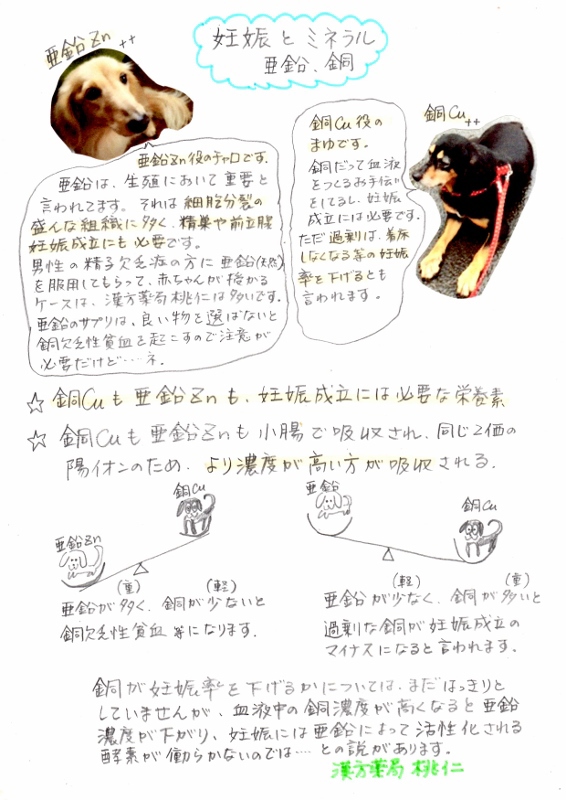 妊娠とミネラル
亜鉛、銅
亜鉛Zn++
亜鉛Zn役のチャロです。
亜鉛は、生殖において重要と
言われてます。それは細胞分裂の
盛んな組織に多く、精巣や前立腺
妊娠成立にも必要です。
男性の精子欠乏症の方に亜鉛(天然)
を服用してもらって、赤ちゃんが授かる
ケースは、漢方薬局桃仁は多いです。
亜鉛のサプリは、良い物を選ばないと
銅欠乏性貧血を起こすので注意が
必要だけど…ネ。
銅Cu++
銅Cu役の
まゆです。
銅だって血液
をつくるお手伝い
をしてるし、妊娠
成立には必要です。
ただ過剰は、着床
しなくなる等の妊娠
率を下げるとも
言われます。
☆ 銅Cuも亜鉛Znも、妊娠成立には必要な栄養素
☆ 銅Cuも亜鉛Znも小腸で吸収され、同じ2価の
陽イオンのため、より濃度が高い方が吸収される。
亜鉛Zn
銅Cu
(重) (軽)
亜鉛が多く、銅が少ないと
銅欠乏性貧血等になります。
亜鉛
銅Cu
(軽) (重)
亜鉛が少なく、銅が多いと
過剰な銅が妊娠成立の
マイナスになると言われます。
銅が妊娠率を下げるかについては、まだはっきりと
していませんが、血液中の銅濃度が高くなると亜鉛
濃度が下がり、妊娠には亜鉛によって活性化される
酵素が働らかないのでは…との説があります。
漢方薬局 桃仁